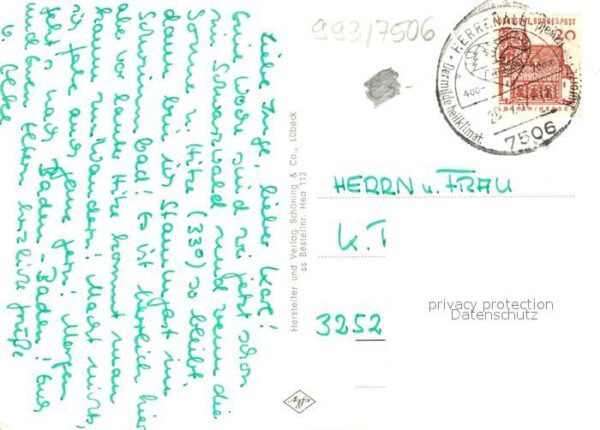 Liebe Inge, lieber Karl!
Eine Woche sind wir jetzt schon
im Schwarzwald und wenn die
Sonne im Hitze (33°) so bleibt
dann bin ich Stammgast im
Schwimmbad! Es ist herrlich hier
aber vor lauter Hitze kommt man
kaum zum Wandern! Macht nichts,
ich fahre auch gerne fern! Morgen
geht's nach Baden-Baden! Euch
und den Eltern herzliche Grüße
993/7506
HERRENALB
Der milde heilklimat. Kurort
400-
20
7506
DEUTSCHE BUNDESPOST
20
LORSCH/HESSEN
HERRN u. FRAU
K. T
3252
Hersteller und Verlag Schöning & Co., Lübeck
ss Bestellnr. Hea 112
privacy protection
Datenschutz